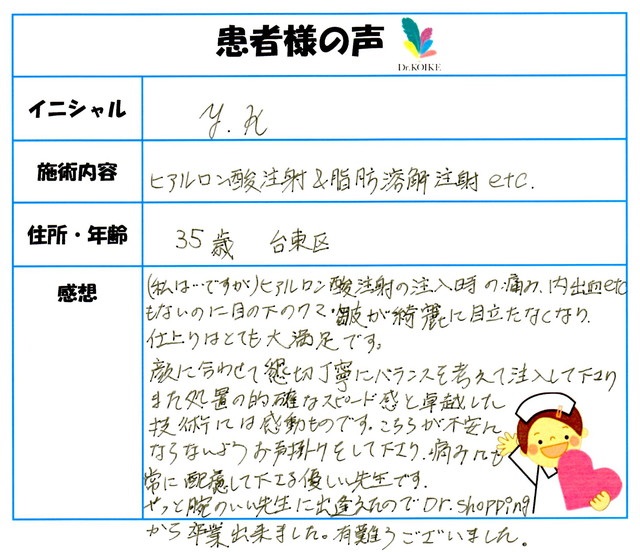 患者様の声
Dr.KOIKE
イニシャル
Y.K
施術内容
ヒアルロン酸注射&脂肪溶解注射 etc.
住所・年齢
35歳 台東区
感想
(私は…ですが)ヒアルロン酸注射の注入時の痛み、内出血etc
もないのに目の下のクマ・皺が綺麗に目立たなくなり、
仕上りはとても大満足です。
顔に合わせて懇切丁寧にバランスを考えて注入して下さり
また処置の的確なスピード感と卓越した
技術には感動ものです。こちらが不安に
ならないようお声掛けをして下さり、痛みにも
常に配慮して下さる優しい先生です。
やっと腕のいい先生に出逢えたのでDr.shopping
から卒業出来ました。有難うございました。